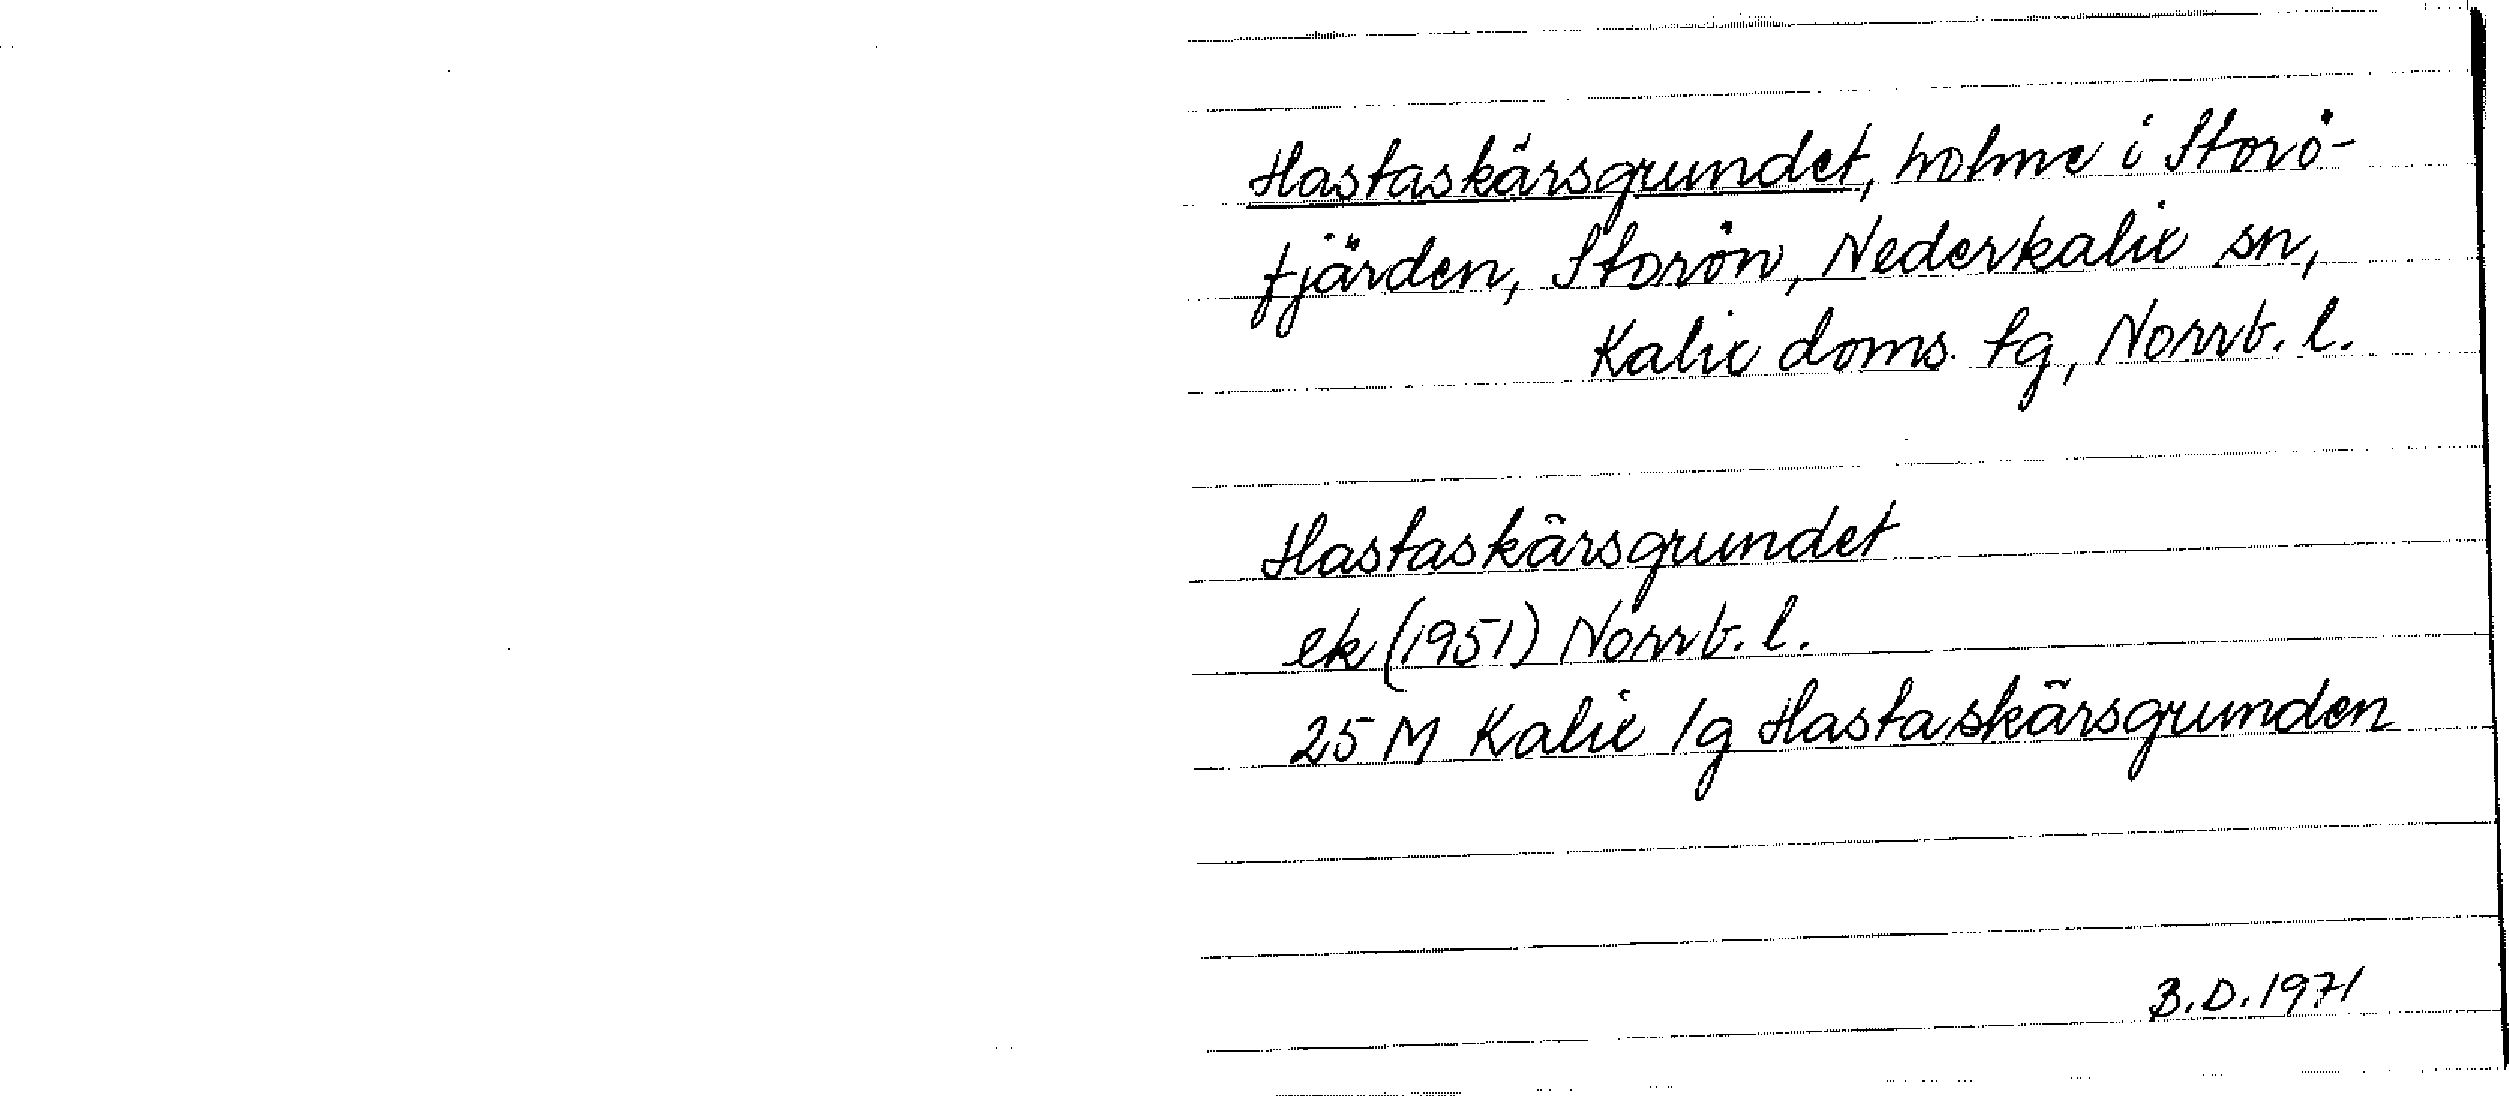 Hastaskärsgrundet, holme i Storö-
fjärden, Storön, Nederkalix sn,
Kalix doms. tg, Norrb. l.
Hastaskärsgrundet
ek (1951) Norrb. l.
25 M Kalix 1g Hastaskärsgrunden
B.D. 1971